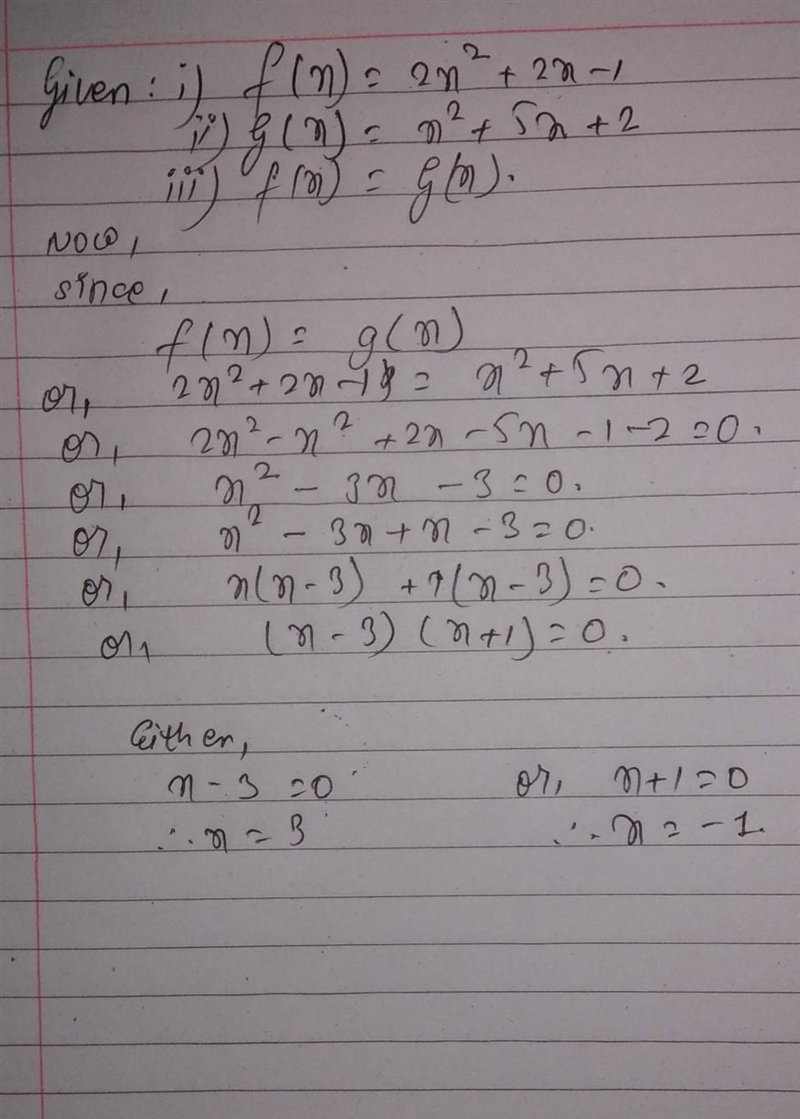 Given: i) f(x) = 2x² + 2x - 1
ii) g(x) = x² + 5x + 2
iii) f(x) = g(x).
Now,
since,
f(x) = g(x)
or, 2x² + 2x - 1 = x² + 5x + 2
or, 2x² - x² + 2x - 5x - 1 - 2 = 0.
or, x² - 3x - 3 = 0.
or, x² - 3x + x - 3 = 0.
or, x(x - 3) + 1(x - 3) = 0.
or, (x - 3) (x + 1) = 0.
Either,
x - 3 = 0 or, x + 1 = 0
∴ x = 3 ∴ x = -1.